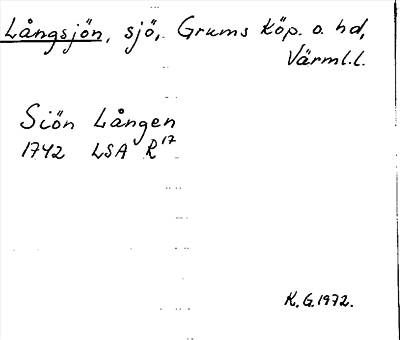 Långsjön, sjö, Grums köp. o. hd,
Värml.l.
Siön Lången
1742 LSA R17
K.G.1972.